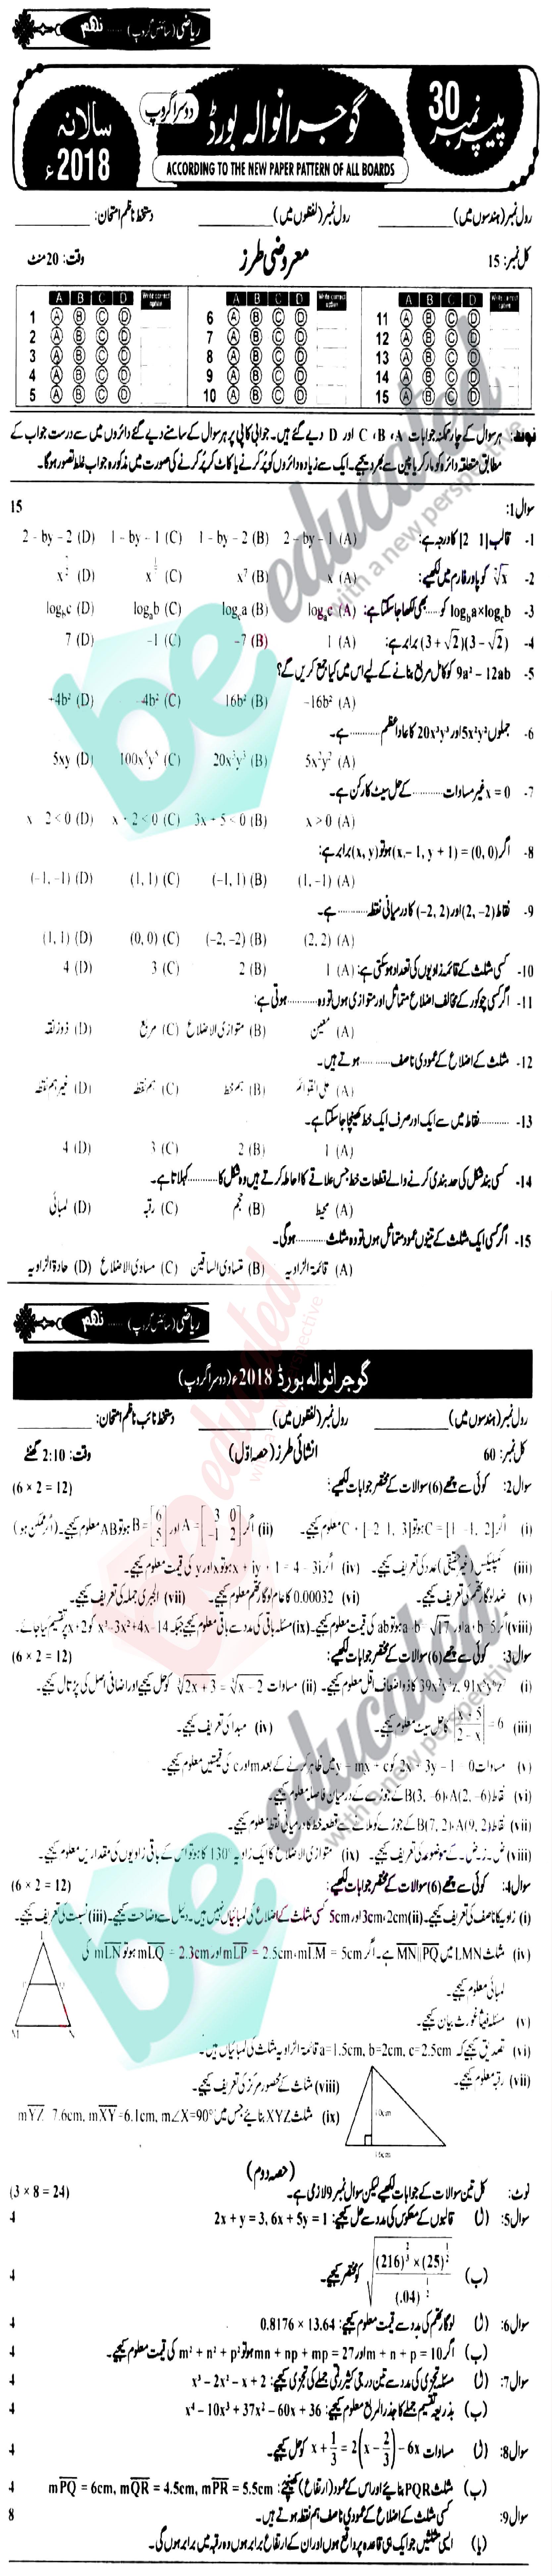 ریاضی (سائنس گروپ) ...... نہم
پیپر نمبر 30
گوجرانوالہ بورڈ
دوسرا گروپ
سالانہ 2018ء
ACCORDING TO THE NEW PAPER PATTERN OF ALL BOARDS
رول نمبر (ہندسوں میں) ________ رول نمبر (لفظوں میں) ________ دستخط ناظم امتحان: ________
کل نمبر: 15 معروضی طرز وقت: 20 منٹ
A B C D Write correct option A B C D Write correct option A B C D Write correct option
1 A B C D 6 A B C D 11 A B C D
2 A B C D 7 A B C D 12 A B C D
3 A B C D 8 A B C D 13 A B C D
4 A B C D 9 A B C D 14 A B C D
5 A B C D 10 A B C D 15 A B C D
نوٹ: ہر سوال کے چار ممکنہ جوابات A، B، C اور D دیے گئے ہیں۔ جوابی کاپی پر ہر سوال کے سامنے دیے گئے دائروں میں سے درست جواب کے
مطابق متعلقہ دائرہ کو مارکر یا پین سے بھر دیجیے۔ ایک سے زیادہ دائروں کو پُر کرنے یا کاٹ کر پُر کرنے کی صورت میں مذکورہ جواب غلط تصور ہوگا۔
سوال 1: 15
1- قالب [2 1] کا درجہ ہے: (A) 2-by-1 (B) 1-by-2 (C) 1-by-1 (D) 2-by-2
2- کو پاور فارم میں لکھیے: (A) x (B) x⁷ (C) (D)
3- log_b a×log_c b کو ...... بھی لکھا جا سکتا ہے: (A) log_a c (B) log_c a (C) log_a b (D) log_b c
4- (3+√2)(3−√2) برابر ہے: (A) 1 (B) -7 (C) -1 (D) 7
5- 9a² − 12ab کو کامل مربع بنانے کے لیے اس میں کیا جمع کریں گے؟
(A) −16b² (B) 16b² (C) −4b² (D) +4b²
6- جملوں 5x²y² اور 20x³y³ کا عاد اعظم ............ ہے۔
(A) 5x²y² (B) 20x³y³ (C) 100x⁵y⁵ (D) 5xy
7- x = 0 غیر مساوات ............ کے حل سیٹ کا رکن ہے۔
(A) x > 0 (B) 3x + 5 < 0 (C) x + 2 < 0 (D) x − 2 < 0
8- اگر (x − 1, y + 1) = (0, 0) ہو تو (x, y) برابر ہے:
(A) (1, −1) (B) (−1, 1) (C) (1, 1) (D) (−1, −1)
9- نقاط (2, −2) اور (−2, 2) کا درمیانی نقطہ ............ ہے۔
(A) (2, 2) (B) (−2, −2) (C) (0, 0) (D) (1, 1)
10- کسی مثلث کے قائمہ زاویوں کی تعداد ہو سکتی ہے: (A) 1 (B) 2 (C) 3 (D) 4
11- اگر کسی چوکور کے مخالف اضلاع متماثل اور متوازی ہوں تو وہ ............ ہوتی ہے:
(A) معین (B) متوازی الاضلاع (C) مربع (D) ذوزنقہ
12- مثلث کے اضلاع کے عمودی ناصف ............ ہوتے ہیں۔
(A) علی القوائم (B) ہم خط (C) ہم نقطہ (D) غیر ہم نقطہ
13- ............ نقاط میں سے ایک اور صرف ایک خط کھینچا جا سکتا ہے۔
(A) 1 (B) 2 (C) 3 (D) 4
14- کسی بند شکل کی حد بندی کرنے والے قطعات خط جس علاقے کا احاطہ کرتے ہیں وہ شکل کا ............ کہلاتا ہے۔
(A) محیط (B) حجم (C) رقبہ (D) لمبائی
15- اگر کسی ایک مثلث کے تینوں عمود متماثل ہوں تو وہ مثلث ............ ہوگی۔
(A) قائمۃ الزاویہ (B) متساوی الساقین (C) مساوی الاضلاع (D) حادۃ الزاویہ
ریاضی (سائنس گروپ) ...... نہم
گوجرانوالہ بورڈ 2018ء (دوسرا گروپ)
رول نمبر (ہندسوں میں) ________ رول نمبر (لفظوں میں) ________ دستخط نائب ناظم امتحان: ________
کل نمبر: 60 انشائی طرز (حصہ اوّل) وقت: 2:10 گھنٹے
سوال 2: کوئی سے چھے (6) سوالات کے مختصر جوابات لکھیے: (6 × 2 = 12)
(i) اگر C = [1 −1 2] ہو تو C + [−2 1 3] معلوم کیجیے۔ (ii) اگر A = [3 0; −1 2] اور B = [6; 5] ہو تو AB معلوم کیجیے۔ (اگر ممکن ہو)
(iii) کمپلیکس (غیر حقیقی) عدد کی تعریف کیجیے۔ (iv) اگر x + iy + 1 = 4 − 3i ہو تو x اور y کی قیمت معلوم کیجیے۔
(v) ضد لوگارتھم کی تعریف کیجیے۔ (vi) 0.00032 کا عام لوگارتھم معلوم کیجیے۔ (vii) الجبری جملہ کی تعریف کیجیے۔
(viii) اگر a+b=5 اور a−b=√17 ہو تو ab کی قیمت معلوم کیجیے۔ (ix) مسئلہ باقی کی مدد سے باقی معلوم کیجیے جبکہ x³−3x²+4x−14 کو x+2 پر تقسیم کیا جائے۔
سوال 3: کوئی سے چھے (6) سوالات کے مختصر جوابات لکھیے: (6 × 2 = 12)
(i) کا ذواضعاف اقل معلوم کیجیے۔ (ii) مساوات ∛(2x + 3) = ∛(x − 2) کو حل کیجیے اور اضافی اصل کی پڑتال کیجیے۔
(iii) |(x + 5)/(2 − x)| = 6 کا حل سیٹ معلوم کیجیے۔ (iv) مبدا کی تعریف کیجیے۔
(v) مساوات 2x + 3y − 1 = 0 کو y = mx + c میں ظاہر کرنے کے بعد m اور c کی قیمتیں معلوم کیجیے۔
(vi) نقاط A(2, −6)، B(3, −6) کے جوڑے کے درمیان فاصلہ معلوم کیجیے۔
(vii) نقاط A(9, 2)، B(7, 2) کے جوڑے کو ملانے سے قطعہ خط کا درمیانی نقطہ معلوم کیجیے۔
(viii) ض۔ز۔ض۔ کے موضوعہ کی تعریف کیجیے۔ (ix) متوازی الاضلاع کا ایک زاویہ 130° کا ہو تو اس کے باقی زاویوں کی مقداریں معلوم کیجیے۔
سوال 4: کوئی سے چھے (6) سوالات کے مختصر جوابات لکھیے: (6 × 2 = 12)
(i) زاویہ کا ناصف کی تعریف کیجیے۔ (ii) 2cm، 3cm اور 5cm کسی مثلث کے اضلاع کی لمبائیاں نہیں ہیں۔ دلیل سے وضاحت کیجیے۔ (iii) نسبت کی تعریف کیجیے۔
(iv) مثلث LMN میں MN || PQ ہے۔ اگر mLM = 5cm، mLP = 2.5cm اور mLQ = 2.3cm ہو تو mLN کی
لمبائی معلوم کیجیے۔
L P Q M N
(v) مسئلہ فیثاغورث بیان کیجیے۔
(vi) تصدیق کیجیے کہ a=1.5cm, b=2cm, c=2.5cm قائمۃ الزاویہ مثلث کی لمبائیاں ہیں۔
(vii) رقبہ معلوم کیجیے۔ (viii) مثلث کے محصور مرکز کی تعریف کیجیے۔
10cm
16cm
(ix) مثلث XYZ بنائیے جس میں mYZ = 7.6cm, mXY = 6.1cm, m∠X = 90°
(حصہ دوم)
نوٹ: کل تین سوالات کے جوابات لکھیے لیکن سوال نمبر 9 لازمی ہے۔ (3 × 8 = 24)
سوال 5: (ا) قالبوں کے معکوس کی مدد سے حل کیجیے: 2x + y = 3, 6x + 5y = 1 4
(ب) √((216)^(2/3) × (25)^(1/2) / (.04)^(−1/2)) کو مختصر کیجیے۔ 4
سوال 6: (ا) لوگارتھم کی مدد سے قیمت معلوم کیجیے: 0.8176 × 13.64 4
(ب) اگر m + n + p = 10 اور mn + np + mp = 27 ہو تو m² + n² + p² کی قیمت معلوم کیجیے۔ 4
سوال 7: (ا) مسئلہ تجزی کی مدد سے تین درجی کثیر رقمی جملے کی تجزی کیجیے: x³ − 2x² − x + 2 4
(ب) بذریعہ تقسیم جملے کا جذر المربع معلوم کیجیے: x⁴ − 10x³ + 37x² − 60x + 36 4
سوال 8: (ا) مساوات x + 1/3 = 2(x − 2/3) − 6x کو حل کیجیے۔ 4
(ب) مثلث PQR بنائیے اور اس کے عمود (ارتفاع) کھینچیے: mPQ = 6cm, mQR = 4.5cm, mPR = 5.5cm 4
سوال 9: کسی مثلث کے اضلاع کے عمودی ناصف ہم نقطہ ہوتے ہیں۔ 8
(یا) ایسی مثلثیں جو ایک ہی قاعدہ پر واقع ہوں اور ان کے ارتفاع برابر ہوں وہ رقبہ میں برابر ہوں گی۔
be educated
with a new perspective